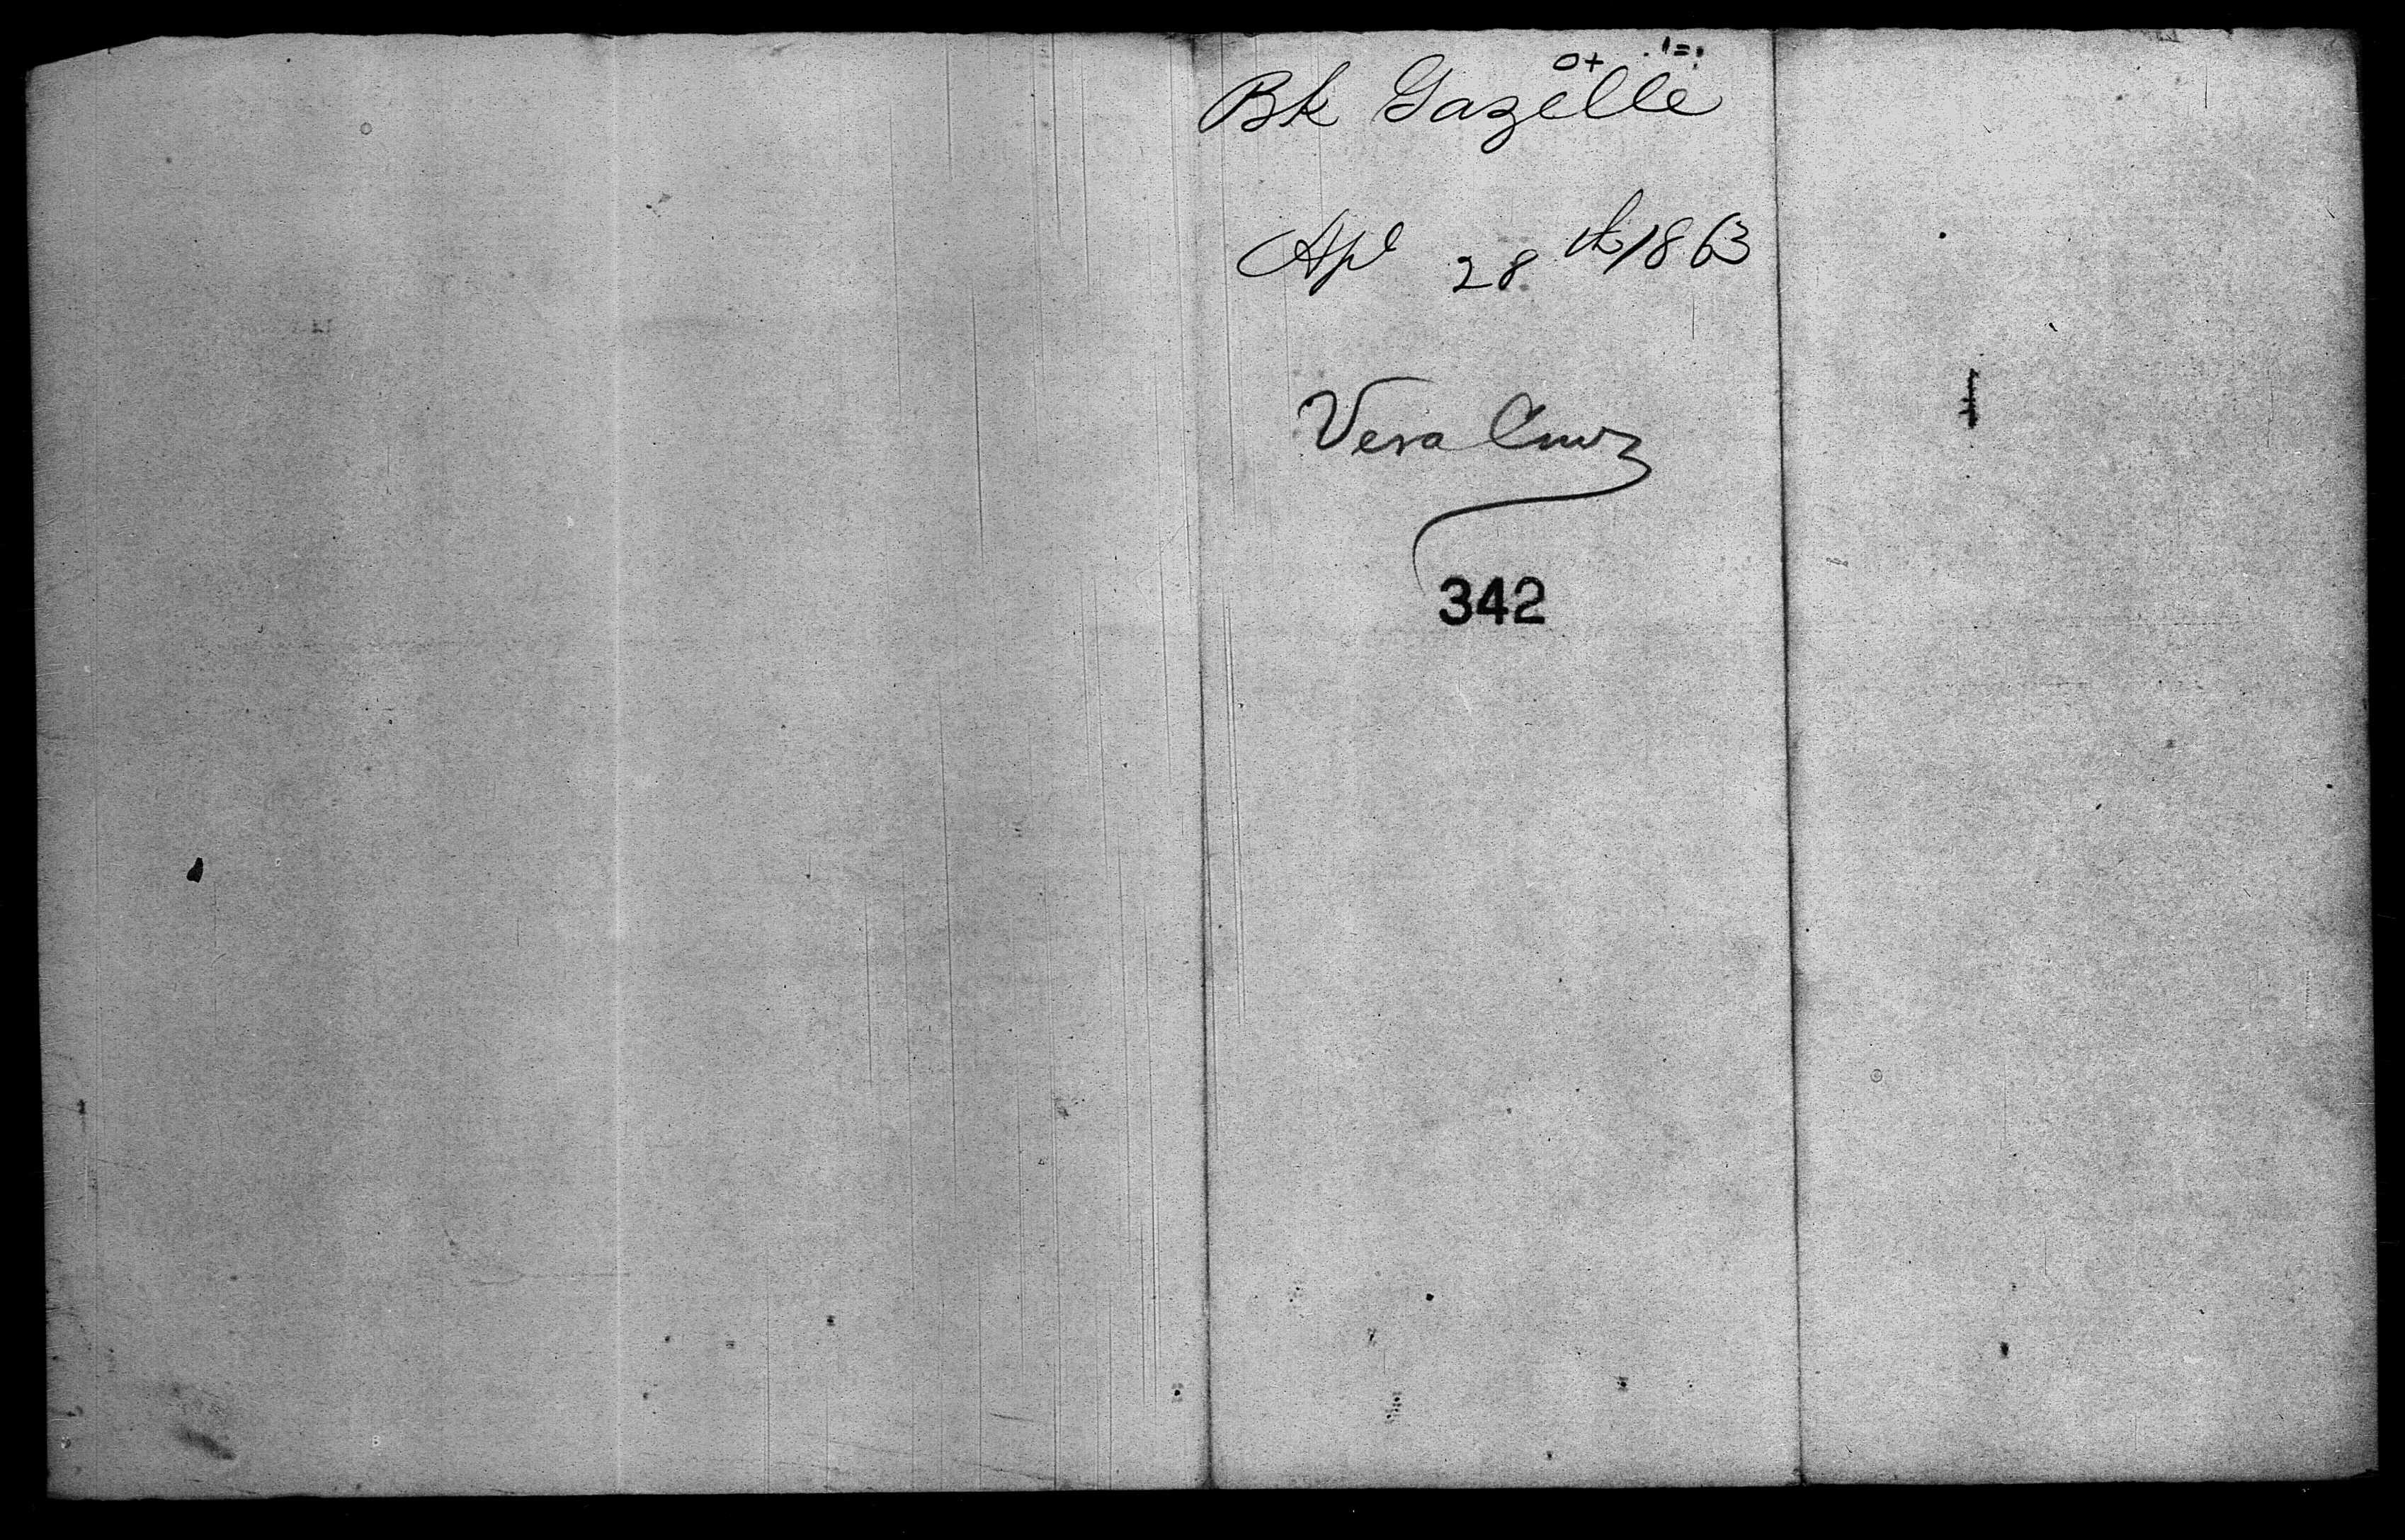 Bk Gazelle
Apl 28th 1863
Vera Cruz
342